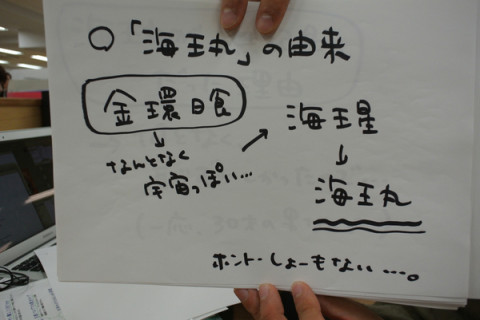 ○「海王丸」の由来
金環日食
↓
なんとなく
宇宙っぽい…
↗
海王星
↓
海王丸
ホントーしょーもない…。